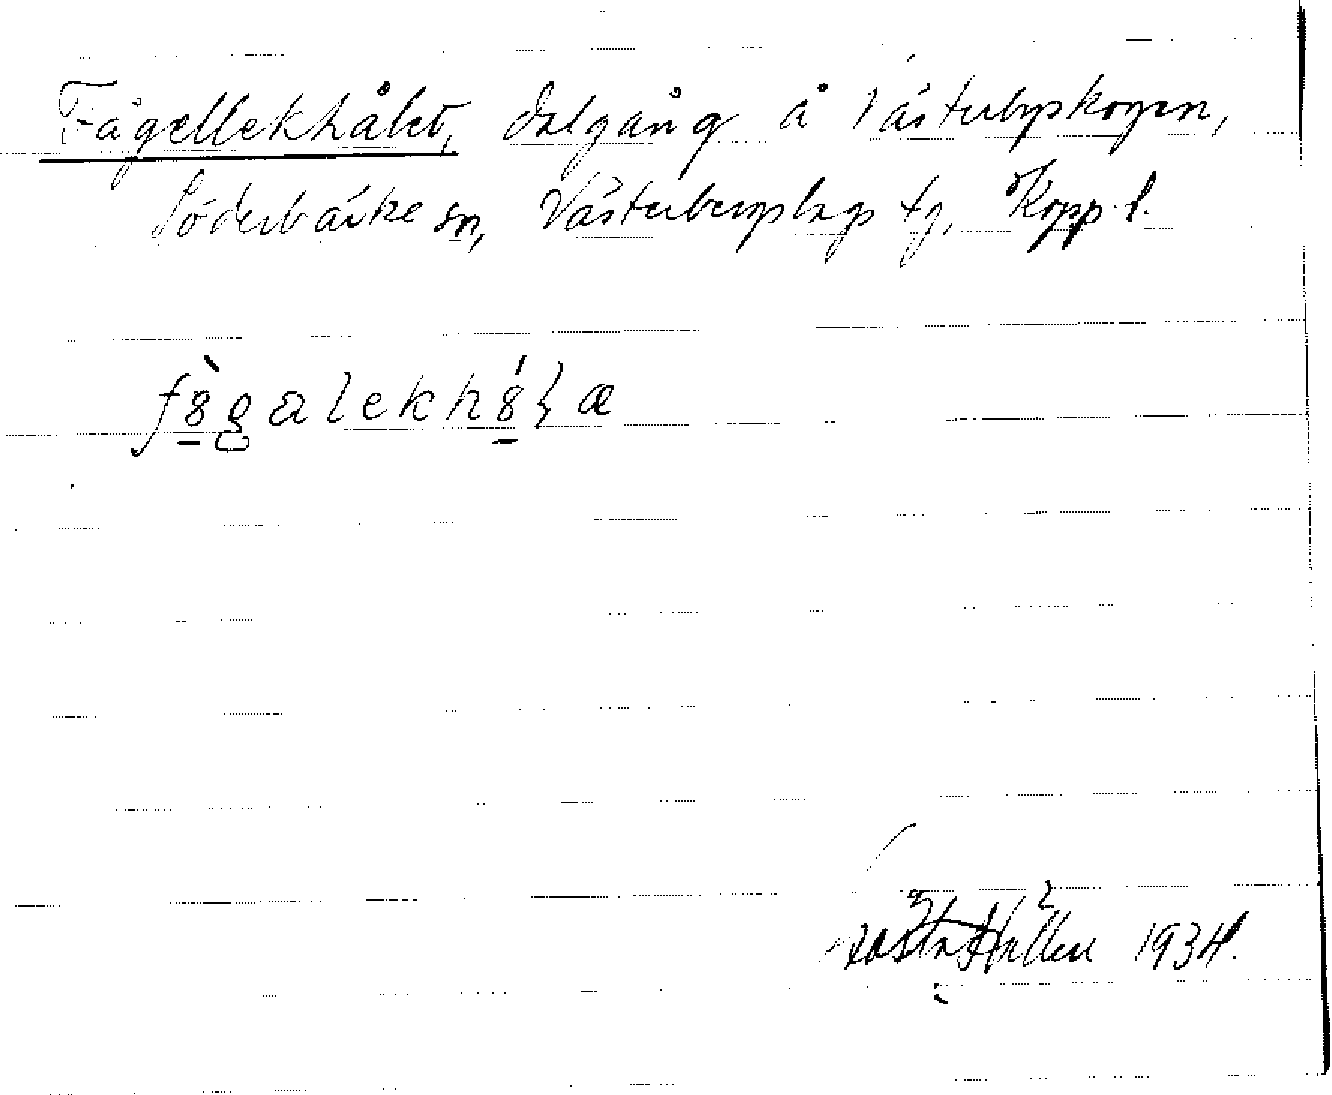 Fågellekhålet, dalgång å Västerbyskogen,
Söderbärke sn, Västerbergslags tg, Kopp. l.
Gösta Hallén 1934.